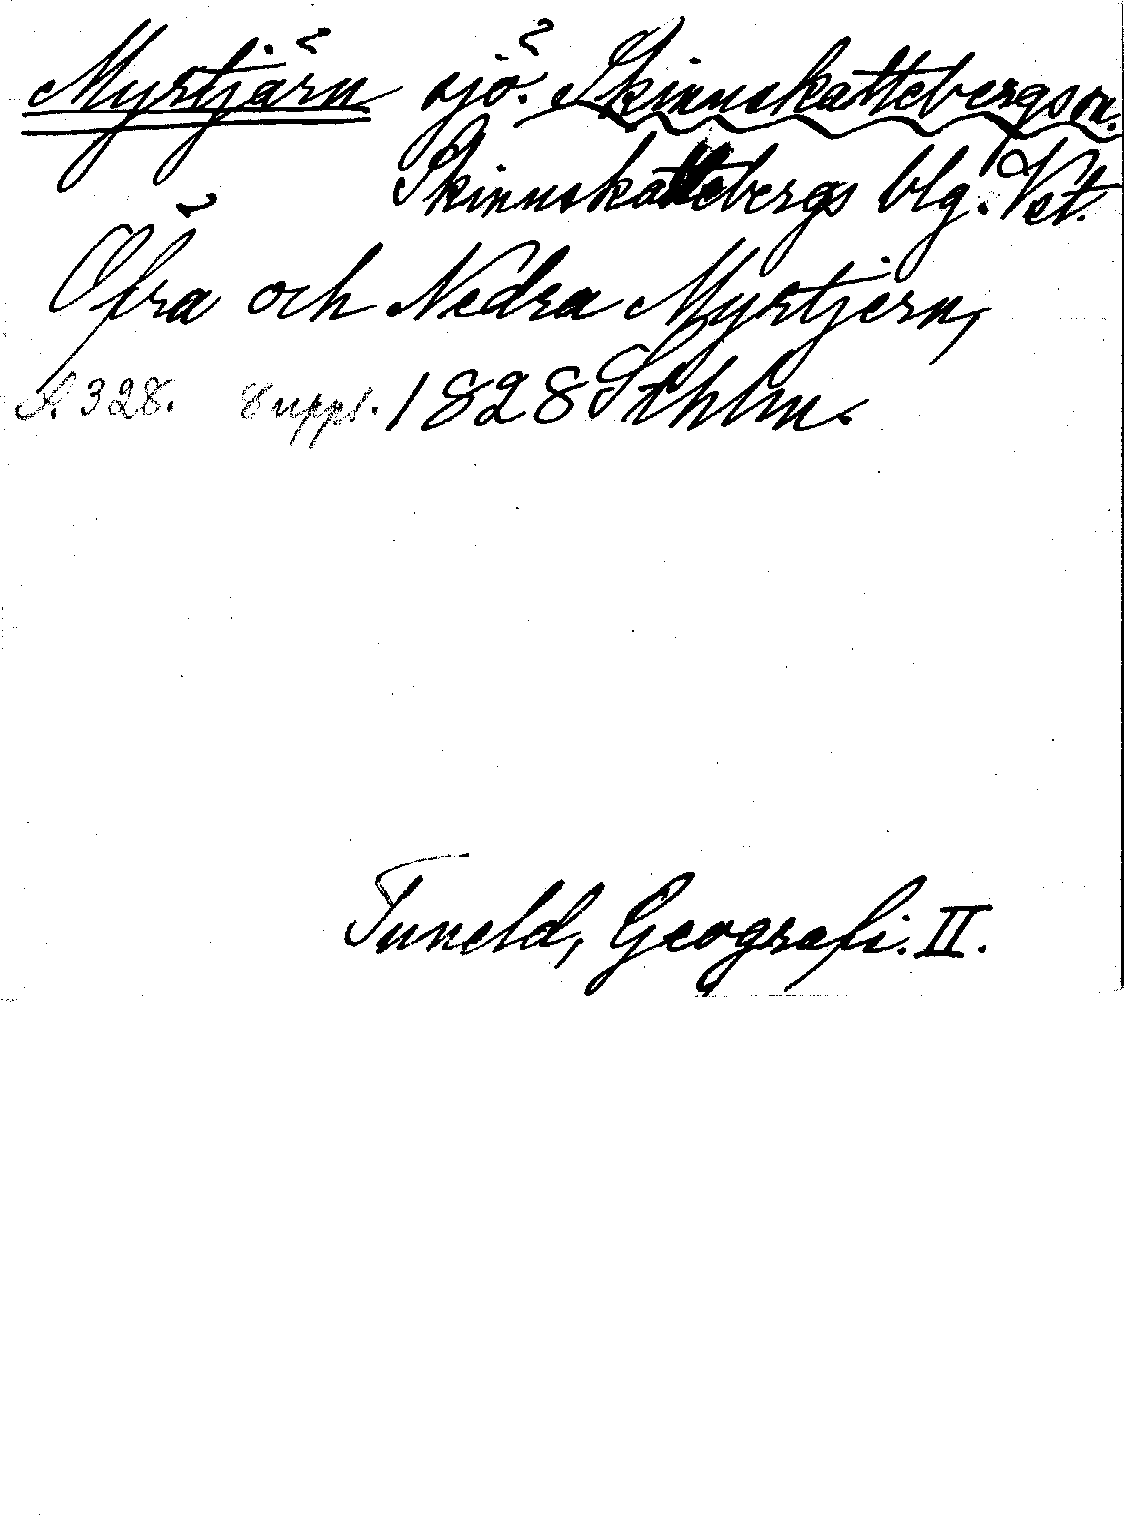 Myrtjärn sjö. Skinnskattebergs sn.
Skinnskattebergs blg. Vst.
Öfra och Nedra Myrtjern,
S. 328. 8 uppl. 1828 Sthlm.
Tuneld, Geografi. II.